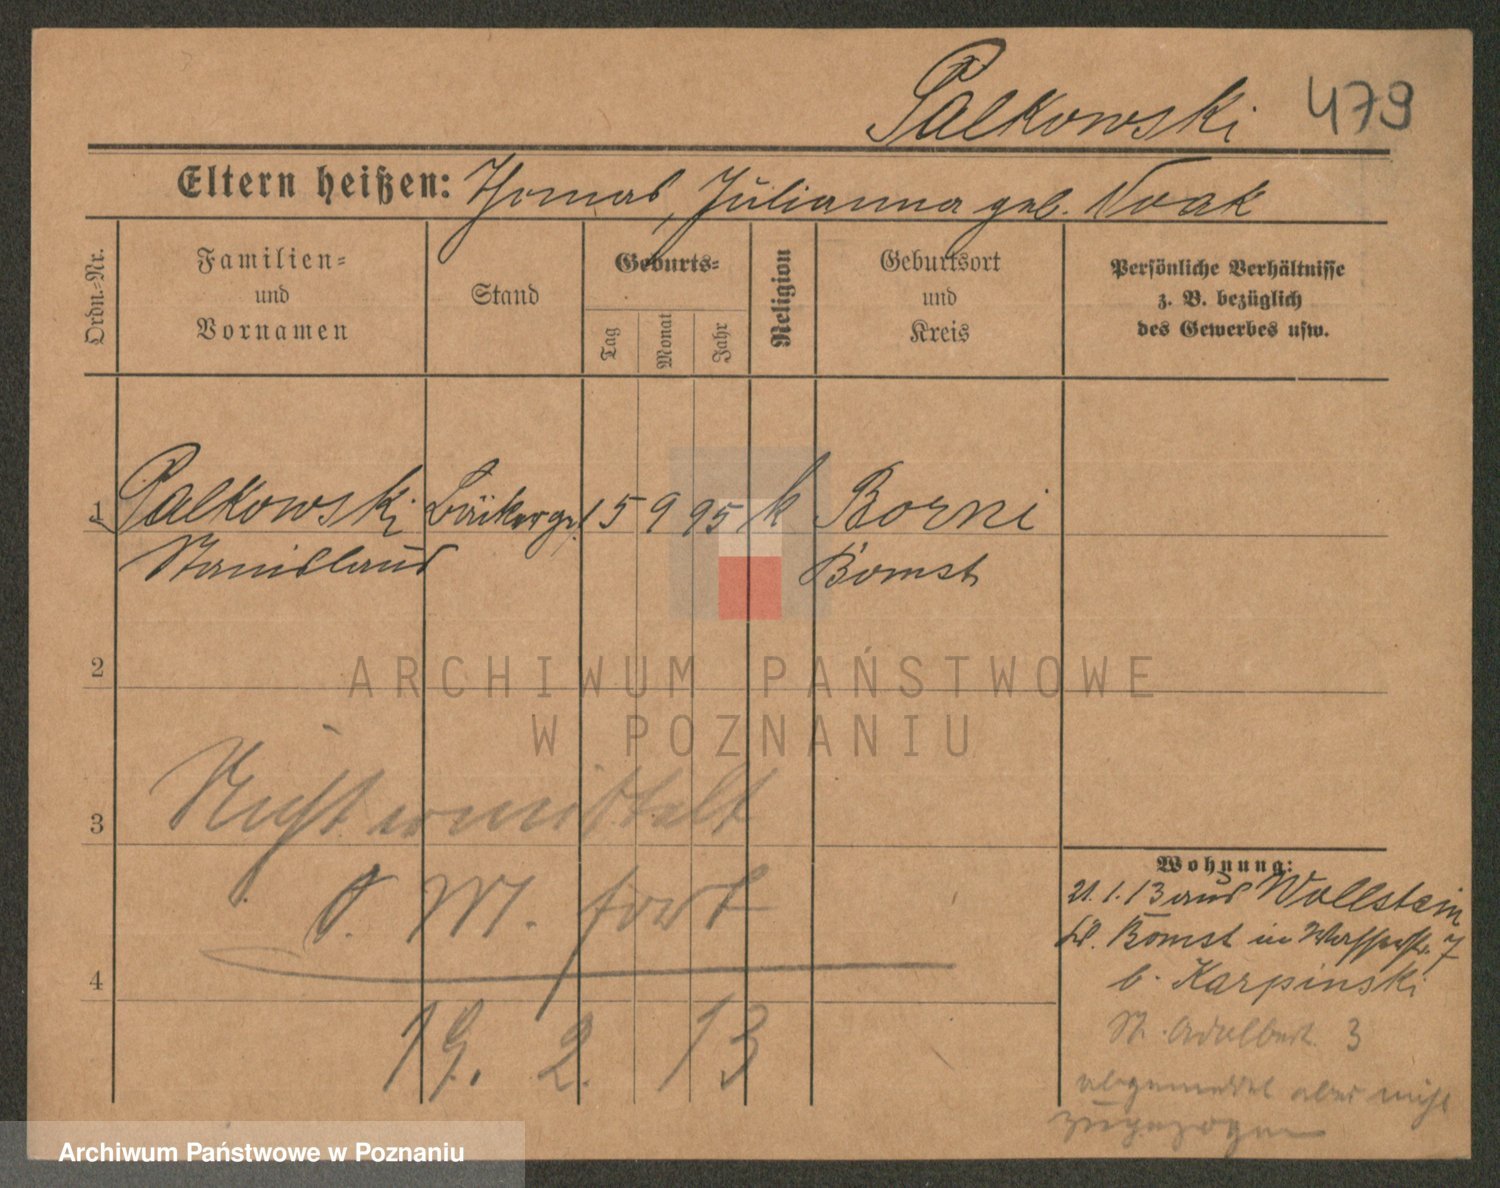 Palkowski 479
Eltern heißen: Thomas, Julianna geb. Noak
Ordn.-Nr.
Familien-
und
Vornamen
Stand
Geburts-
Tag
Monat
Jahr
Religion
Geburtsort
und
Kreis
Persönliche Verhältnisse
z. B. bezüglich
des Gewerbes usw.
1 Palkowski Bäckerges. 15 9 95 k Borni
Stanislaus Bomst
2
ARCHIWUM PAŃSTWOWE
W POZNANIU
3 Nicht ermittelt
O. M. fort
4
19. 2. 13
Wohnung:
21.1.13 aus Wollstein
Kr. Bomst in Wasserstr. 7
b. Karpinski
St. Adalbert. 3
abgemeldet aber nicht
zugezogen
Archiwum Państwowe w Poznaniu